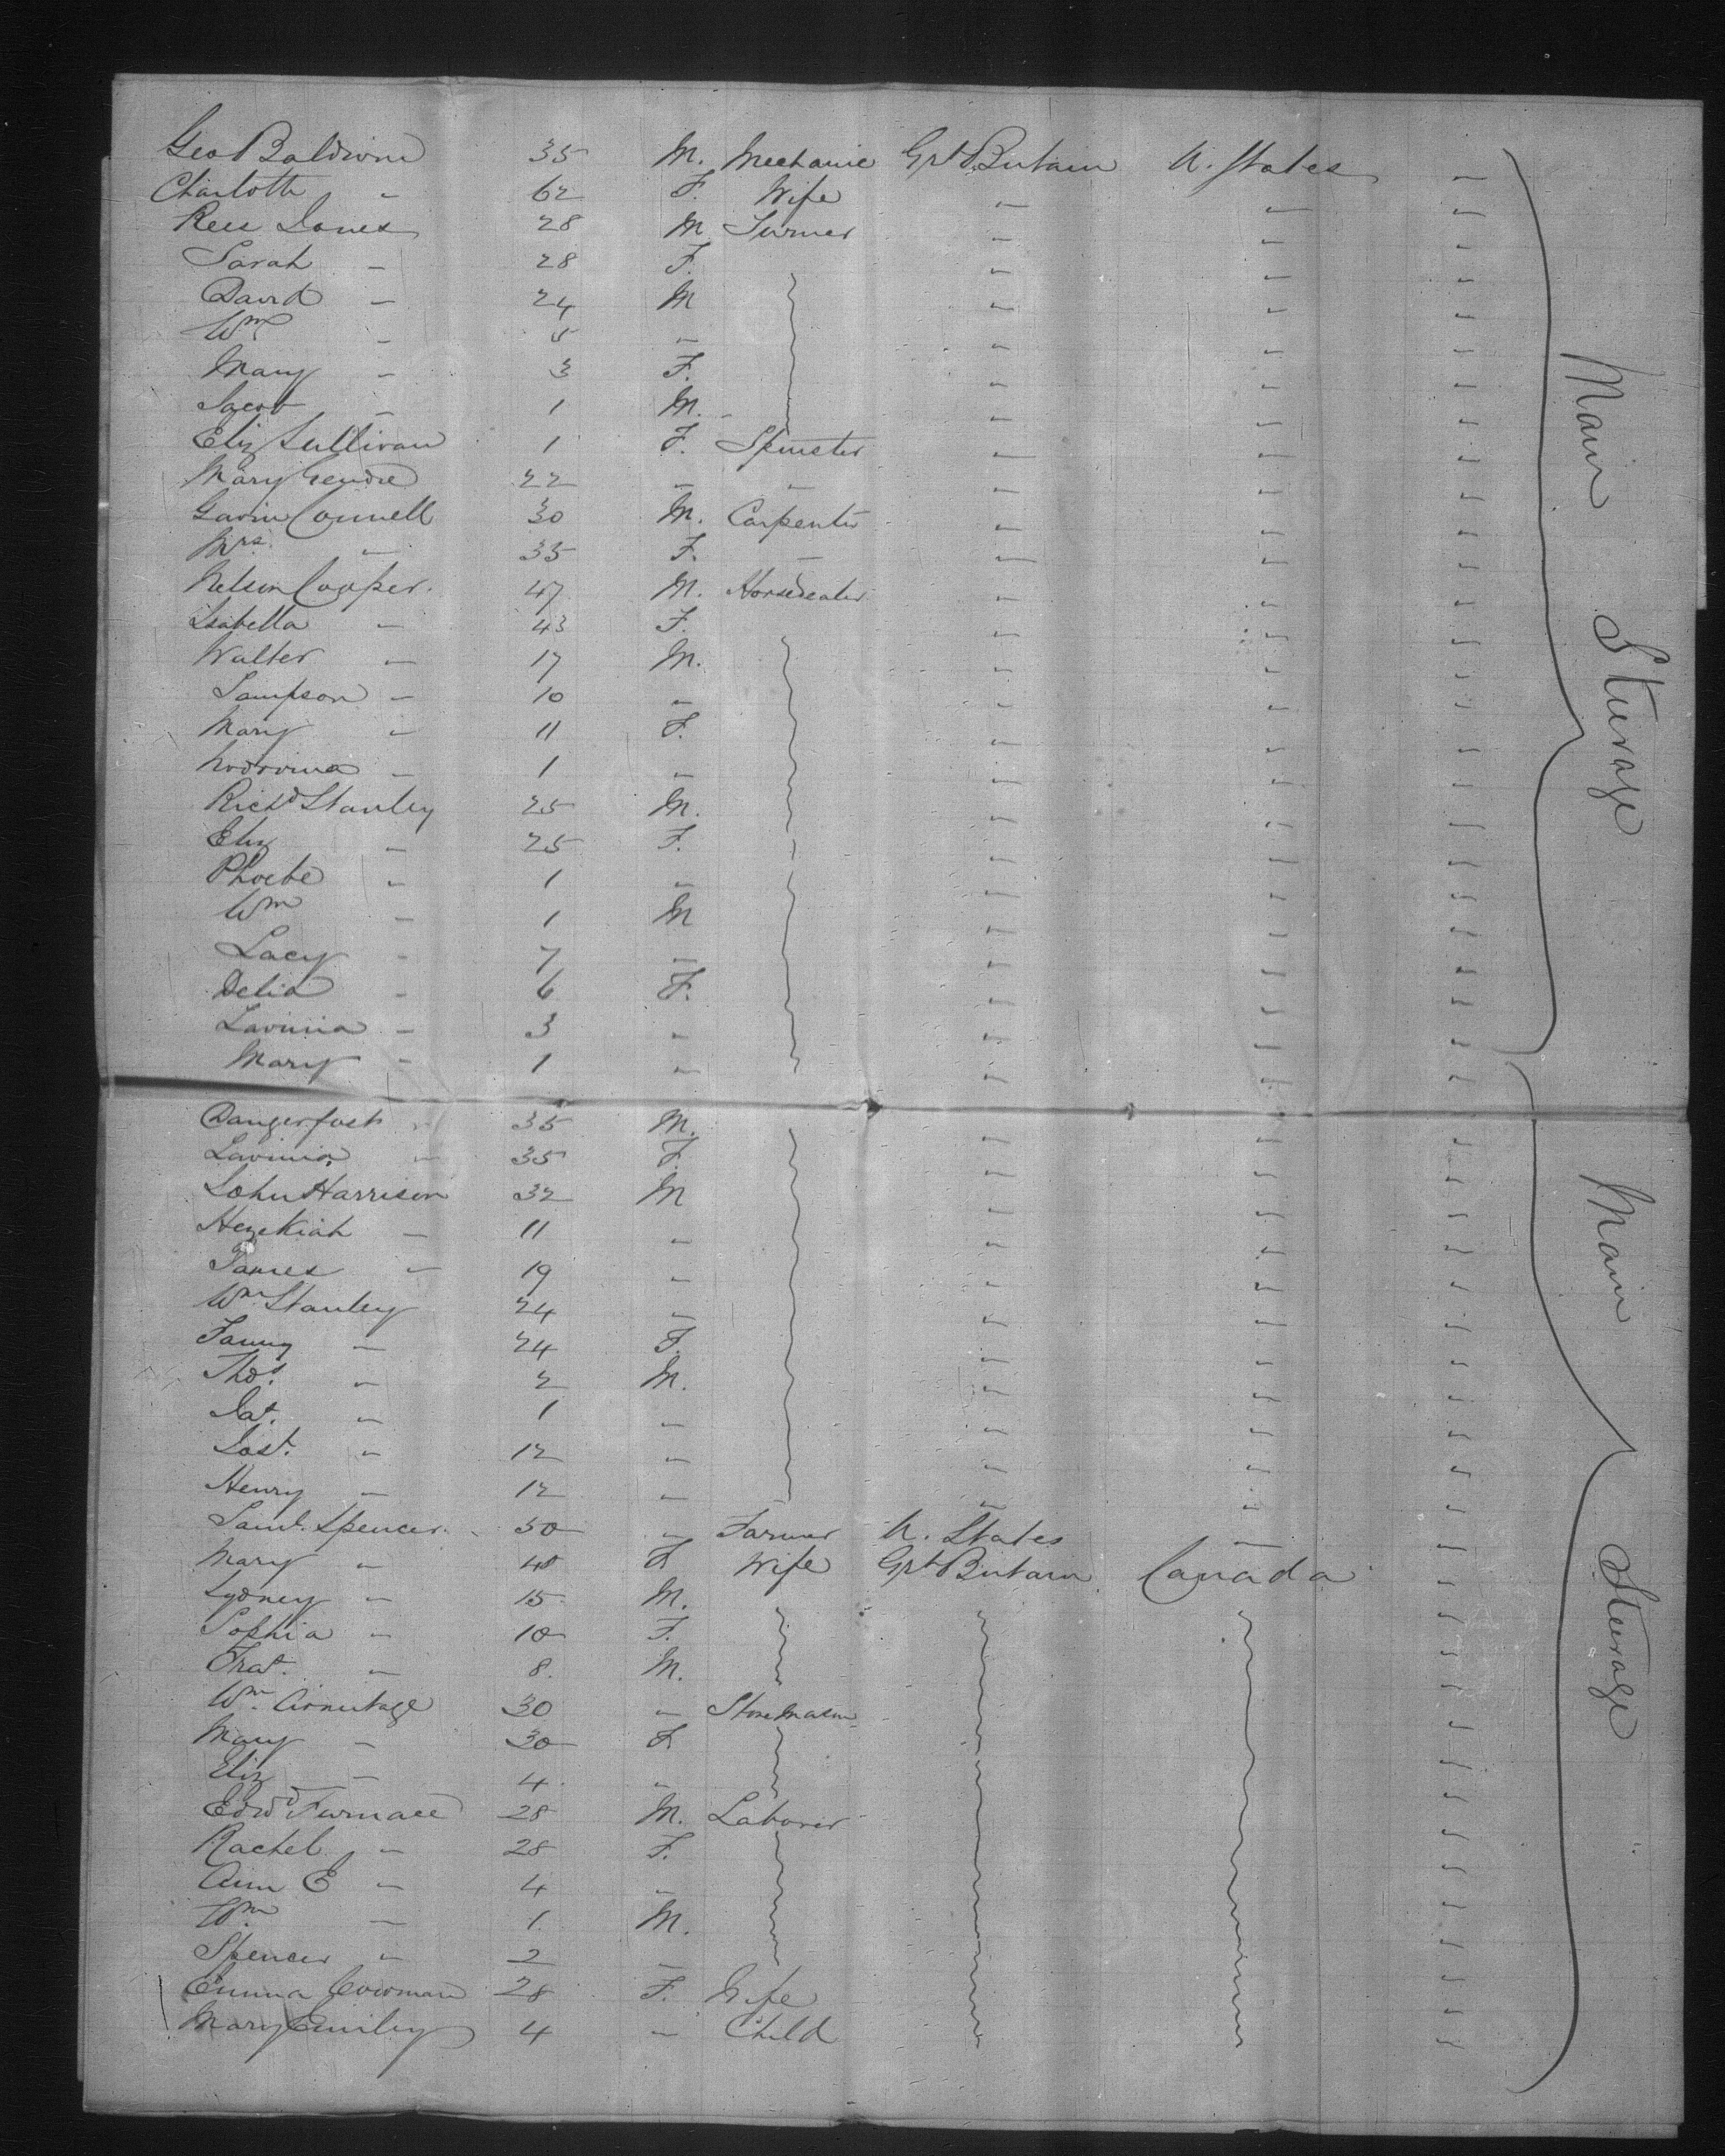 Geo Baldwin 35 M. Mechanic Grt Britain U. States "
Charlotte " 62 F. Wife " " "
Rees Jones 28 M Turner " " "
Sarah " 28 F. " " "
David " 24 M " " "
Wm " 5 " " " "
Mary " 3 F. " " "
Jacob " 1 M. " " "
Eliz Sullivan 1 F. Spinster " " "
Mary 22 " " " " "
Gavin Connell 30 M. Carpenter " " "
Mrs. " 35 F. " " " "
Nelson Cooper. 47 M. Horsedealer " " "
Isabella " 43 F. " " "
Walter " 17 M. " " "
Sampson " 10 " " " "
Mary " 11 F. " " "
" 1 " " " "
Richd Stanley 25 M. " " "
Eliz " 25 F. " " "
Phoebe " 1 " " " "
Wm " 1 M " " "
Lacy " 7 " " " "
Delia " 6 F. " " "
Lavinia " 3 " " " "
Mary " 1 " " " "
Main Steerage
Dangerfost " 35 M. " " "
Lavinia " 35 F. " " "
John Harrison 32 M " " "
Hezekiah " 11 " " " "
James " 19 " " " "
Wm Stanley 24 " " " "
Fanny " 24 F. " " "
Thos. " 2 M. " " "
Jas. " 1 " " " "
Jost. " 12 " " " "
Henry " 12 " " " "
Saml. Spencer. 50 " Farmer U. States " "
Mary " 40 F. Wife Grt Britain Canada "
Sydney " 15 M. "
Sophia " 10 F. "
Frat. " 8. M. "
Wm. Armitage 30 " Stone Mason "
Mary " 30 F. "
Eliz " 4 " "
Edwd Furnace 28 M. Laborer "
Rachel " 28 F. "
Ann E " 4 " "
Wm " 1. M. "
Spencer " 2 " "
Emma Cowman 28 F. Wife "
Mary Emily 4 " Child "
Main Steerage